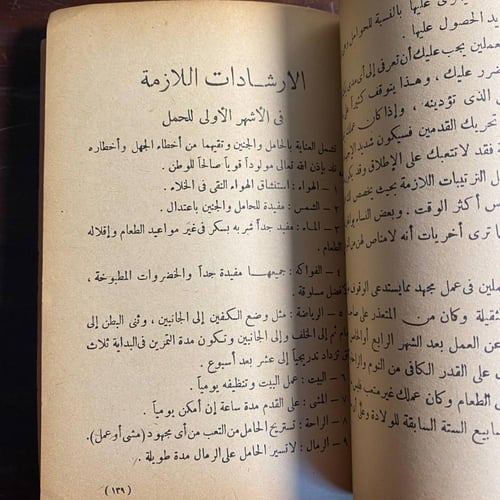 الارشادات اللازمة
فى الأشهر الأولى للحمل
تشمل العناية بالحامل والجنين وتقيهما من أخطاء الجهل وأخطاره
تلد بإذن الله تعالى مولوداً قوياً صالحاً للوطن .
١ – الهواء : استنشاق الهواء النقى فى الخلاء .
٢ – الشمس : مفيدة للحامل والجنين باعتدال .
٣ – الماء : مفيد جداً شربه بسكر فى غير مواعيد الطعام وإقلاله
الطعام .
٤ – الفواكه : جميعها مفيدة جداً والخضروات المطبوخة ،
لافضل مسلوقة .
٥ – الرياضة : مثل وضع الكفين إلى الجانبين ، وثنى البطن إلى
ام ثم إلى الخلف وإلى الجانبين وتكون مدة التمرين فى البداية ثلاث
تزداد تدريجياً إلى عشر بعد أسبوع .
٦ – البيت : عمل البيت وتنظيفه يومياً .
٧ – المشى : على القدم مدة ساعة إن أمكن يومياً .
٨ – الراحة : تستريح الحامل من التعب من أى مجهود (مشى أو عمل) .
٩ – الرمال : لاتسير الحامل على الرمال مدة طويلة .
(١٣٩)
عليها بالنسبة للحوامل
الحصول عليها .
يجب عليك أن تعرفى إلى أى مدى
عليك ، وهذا يتوقف كثيراً
الذى تؤدينه ، وإذا كان عملك
تحريك القدمين فسيكون شديد
فقد لا تتعبك على الإطلاق وقد
الترتيبات اللازمة بحيث يخصص لك
أكثر الوقت . وبعض النساء
ترى أخريات أنه لا مناص لهن من
فى عمل مجهد مما يستدعى الوقوف
وكان من المتعذر على
عن العمل بعد الشهر الرابع أو الخامس
على القدر الكافى من النوم والراحة
الطعام وكان عملك غير متعب
الستة السابقة للولادة وعلى